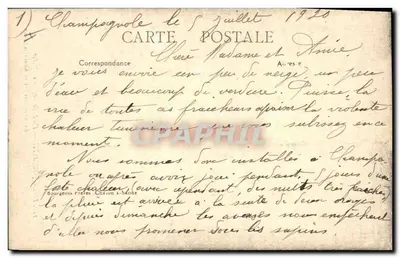 1) Champagnole le 5 juillet 1920
CARTE POSTALE
Chère Madame et Amie
Correspondance Adresse
Je vous envoie un peu de neige, un peu
d'eau et beaucoup de verdure. Puisse la
vue de toutes ces fraîcheurs apaiser la violente
chaleur que vous subissez en ce
moment.
CPAPHIL
Nous sommes donc installés à Champa
gnole où après avoir joui pendant 5 jours d'une
forte chaleur, avec cependant, des nuits très fraîches
la pluie est arrivée à la suite de deux orages
et depuis dimanche les averses nous empêchent
d'aller nous promener sous les sapins.